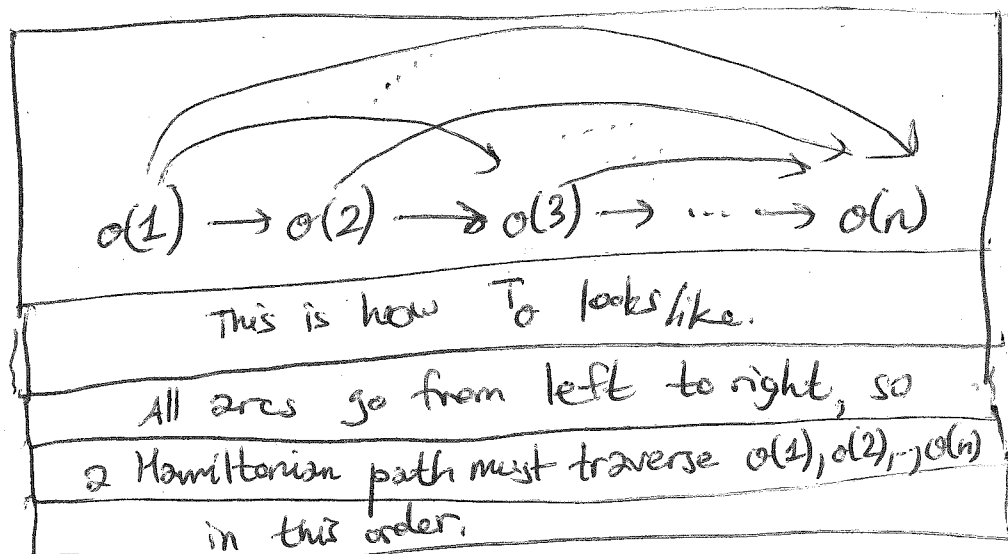 σ(1) → σ(2) → σ(3) → ... → σ(n)
This is how T_σ looks like.
All arcs go from left to right, so
a Hamiltonian path must traverse σ(1), σ(2), .., σ(n)
in this order.